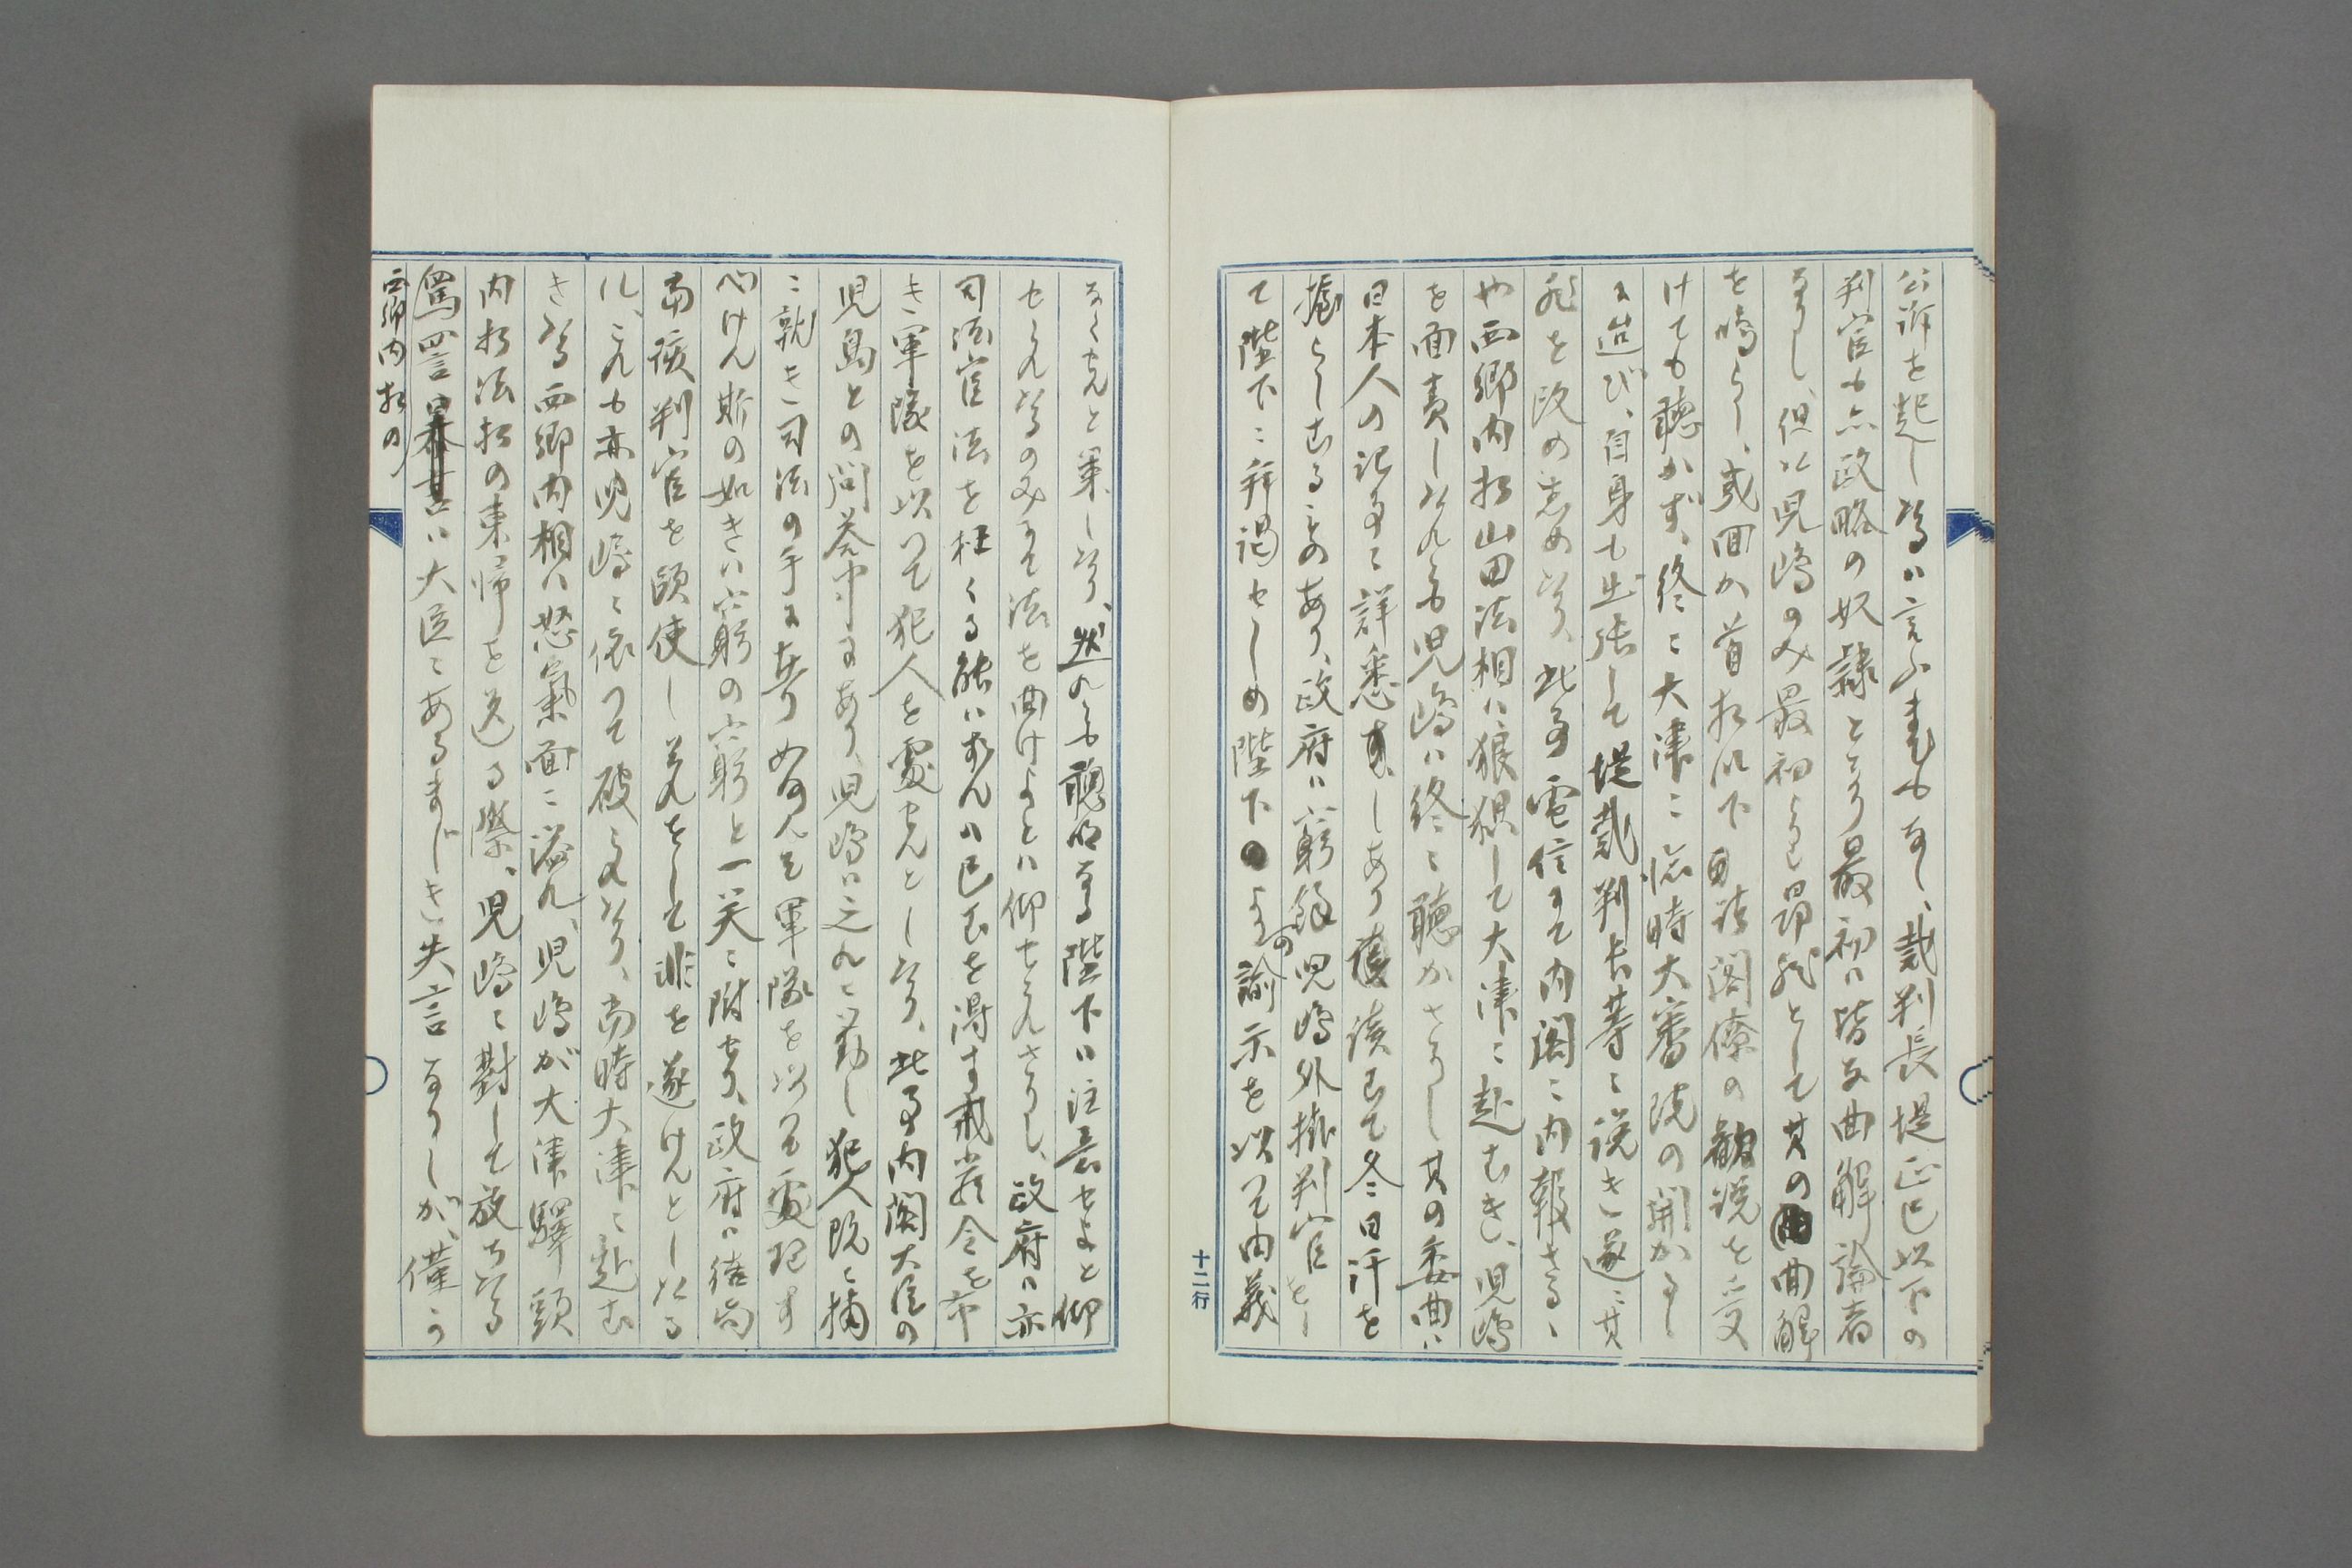 公訴を起しゝは言ふまでもなし、裁判長堤正已以下の
判官も亦政略の奴隷となり最初は皆な曲解論者
なりし、但だ児嶋のみ最初より昂然として其の曲解
を鳴らし、或回か首相以下閣僚の勧説を受
けても聴かず、終に大津に臨時大審院の開かるゝ
に迨び、自身も出張して堤裁判長等に説き遂に其
非を改め志めたり、此事電信にて内閣に内報さるゝ
や西郷内相山田法相は狼狽して大津に赴むき、児嶋
を面責しけれども児嶋は終に聴かざりし其の委曲は
日本人の記事に詳悉しあり読むで冬日汗を
あり、政府は窮余児嶋外掛判官をし
て陛下に拝謁せしめ陛下より の諭示を以て由義
なくせんと策しけり、然れども聡明なる陛下は注意せよと仰
せられけるのみにて法を曲けよとは仰せられざりし、政府は亦
司法官法を枉くる能はずんば已むを得ず戒厳令を布
き軍隊を以つて犯人を処せんとしけり、此事内閣大臣の
児島との問答中にあり、児嶋は之れを 犯人既に捕
に就き司法の手に在り如何んぞ軍隊を以て処理す
べけん斯の如きは窮の窮と一笑に附せり、政府は
判官を頤使しこれをして非を遂けんとしける
に、これも亦児嶋に依つて破られけり、当時大津に赴む
きける西郷内相は怒気面に溢れ、児嶋が大津驛頭
内相法相の東帰を送る際、児嶋に対して放ちける
罵詈は大臣にあるまじき失言なりしが、僅か
西郷内相の